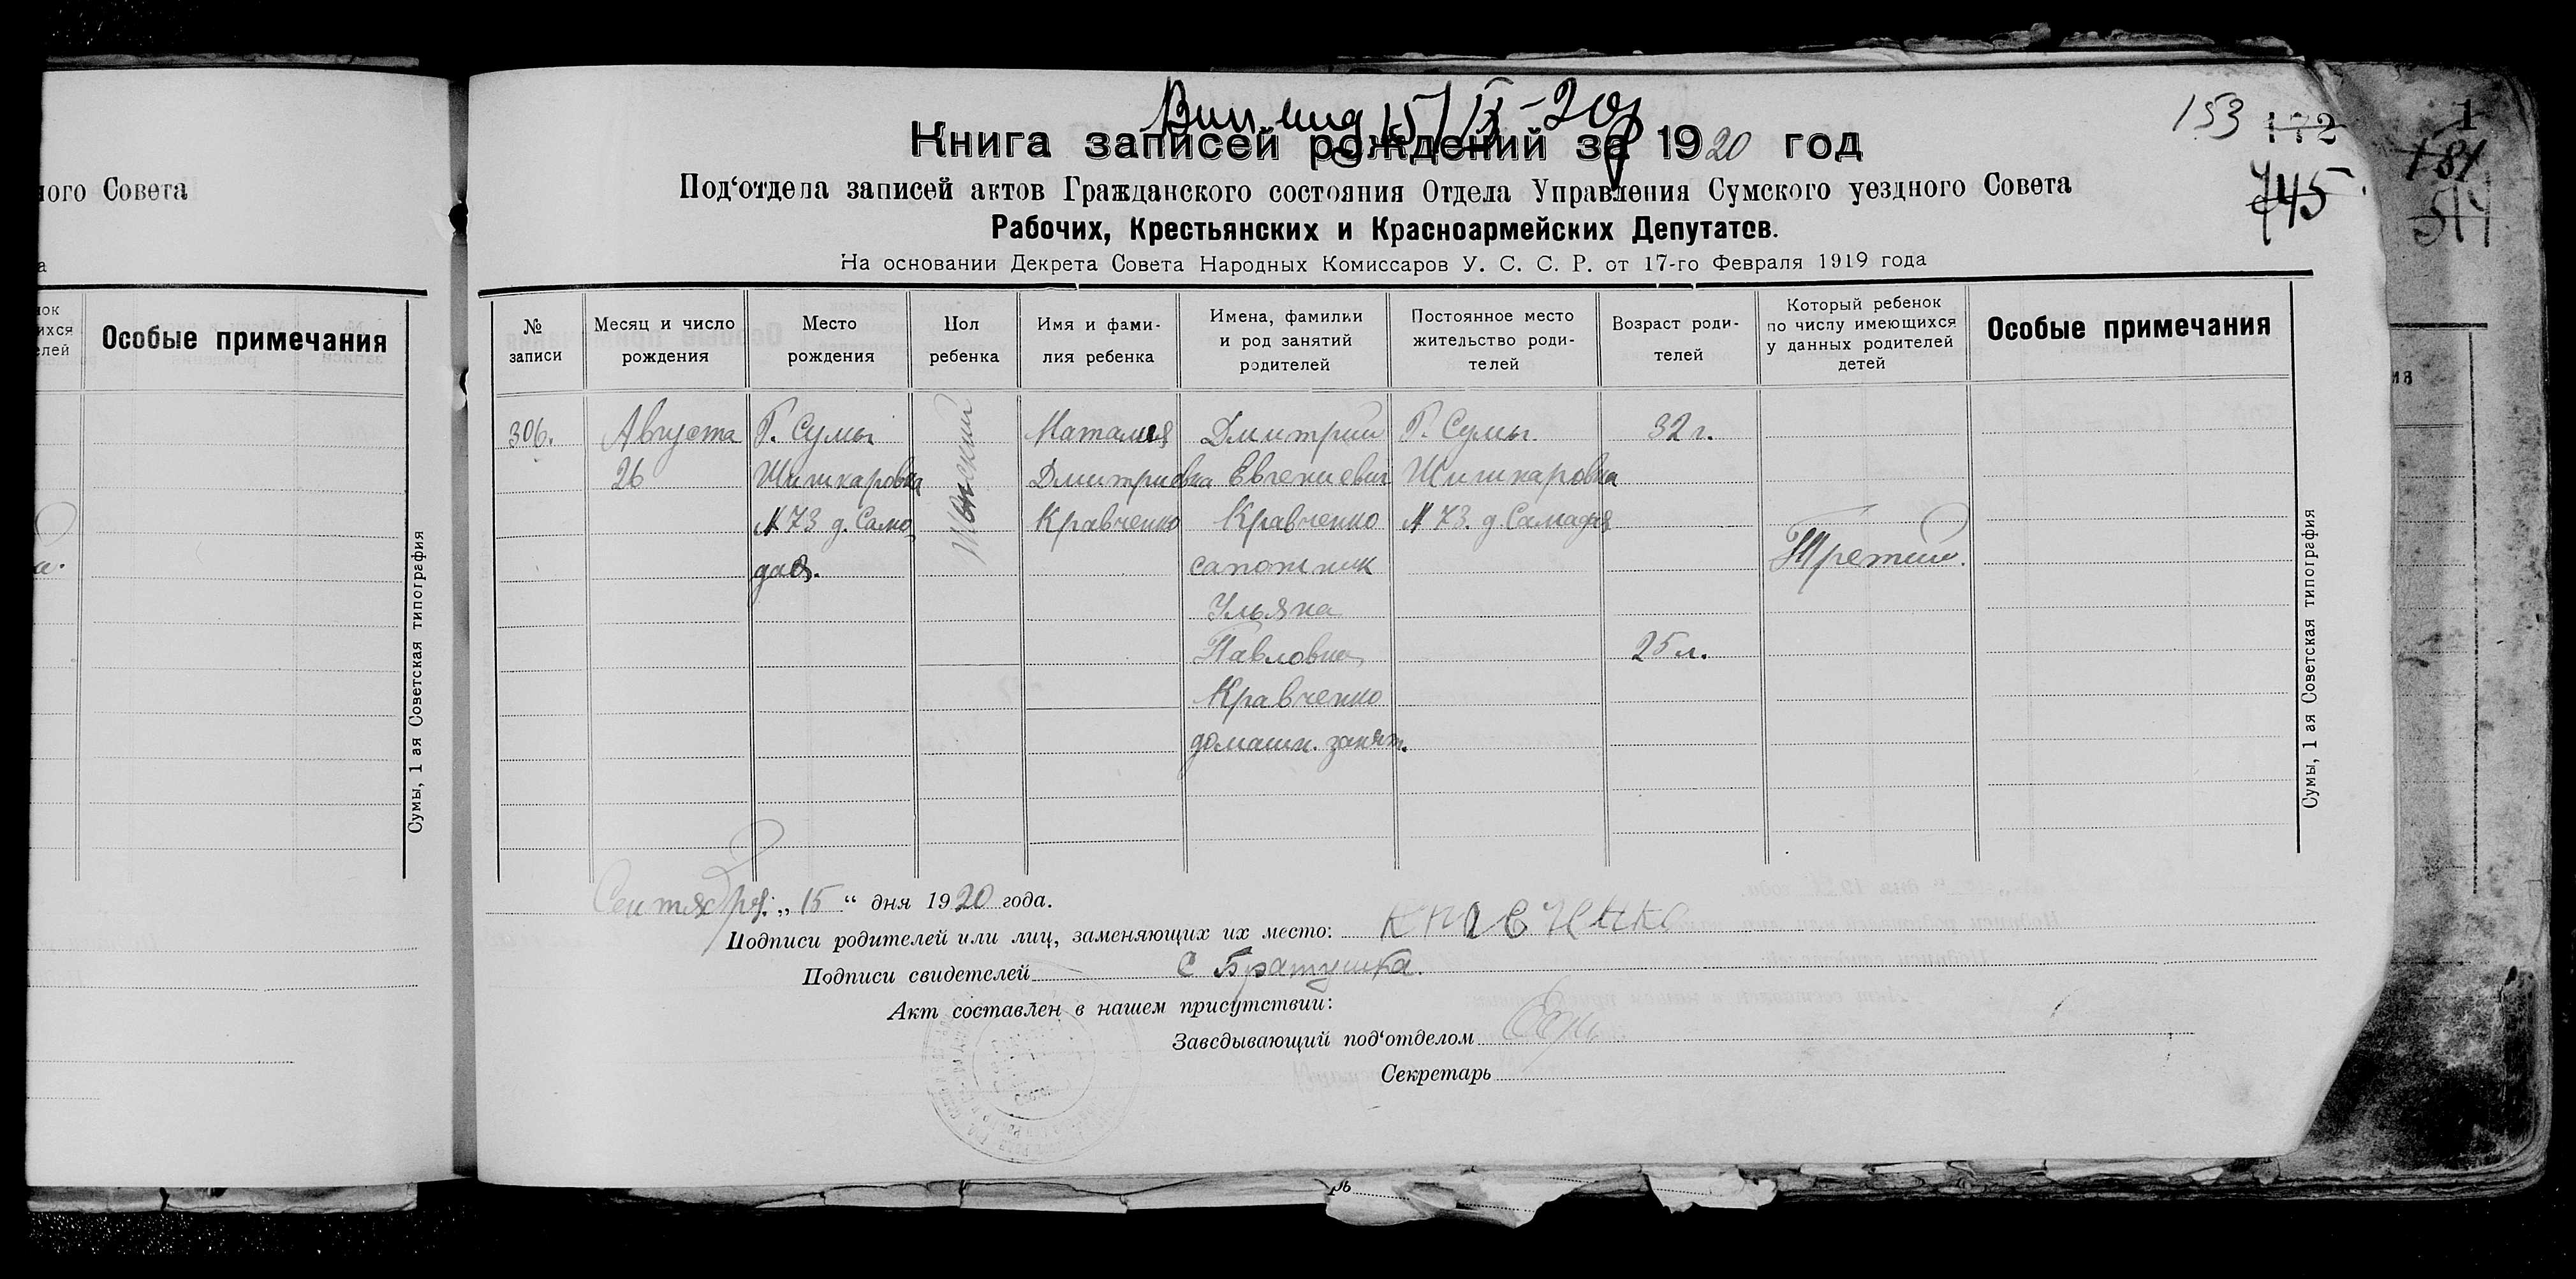 ного Совета
а
нок
ихся
елей
Особые примечания
а.
Сумы, 1 ая Советская типография
15/IX-20г
Книга записей рождений за 1920 год
153
172
745
1
181
514
Под‘отдела записей актов Гражданского состояния Отдела Управления Сумского уездного Совета
Рабочих, Крестьянских и Красноармейских Депутатов.
На основании Декрета Совета Народных Комиссаров У. С. С. Р. от 17-го Февраля 1919 года
№ записи
Месяц и число рождения
Место рождения
Пол ребенка
Имя и фами-
лия ребенка
Имена, фамилии
и род занятий
родителей
Постоянное место
жительство роди-
телей
Возраст роди-
телей
Который ребенок
по числу имеющихся
у данных родителей
детей
Особые примечания
306.
Августа
26
Г. Сумы
Шишкаровка
№ 73 д. Само
дая.
Женский
Наталия
Дмитриевна
Кравченко
Дмитрий
Евгениевич
Кравченко
сапотник
Ульяна
Павловна
Кравченко
домашн. занят.
Г. Сумы
Шишкаровка
№ 73 д. Самадая
32 г.
25 л.
Третий.
Сумы, 1 ая Советская типография
Сентября „ 15 “ дня 1920 года.
Подписи родителей или лиц, заменяющих их место:
Подписи свидетелей С Братушка.
Акт составлен в нашем присутствии:
Заведывающий под‘отделом
Секретарь
№